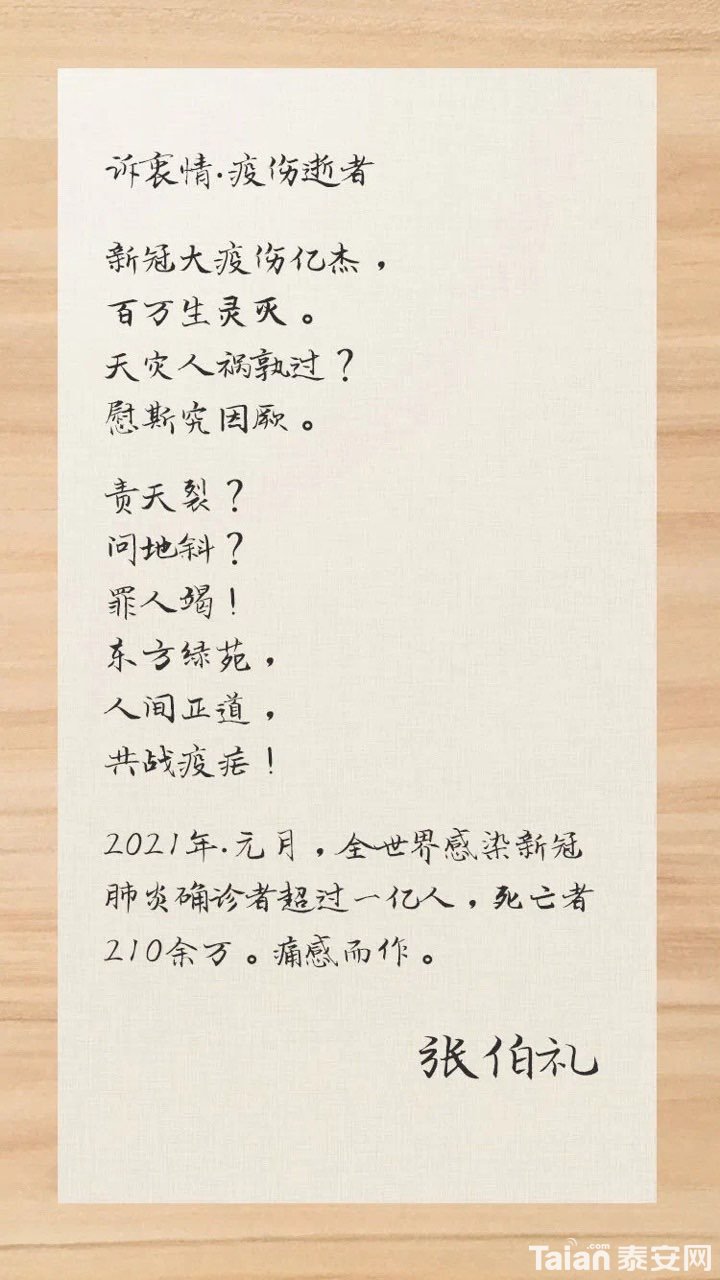 诉衷情·疫伤逝者
新冠大疫伤亿杰，
百万生灵灭。
天灾人祸孰过？
慰斯究因厥。
责天裂？
问地斜？
罪人竭！
东方绿苑，
人间正道，
共战疫疟！
2021年·元月，全世界感染新冠
肺炎确诊者超过一亿人，死亡者
210余万。痛感而作。
张伯礼
Taian.com 泰安网